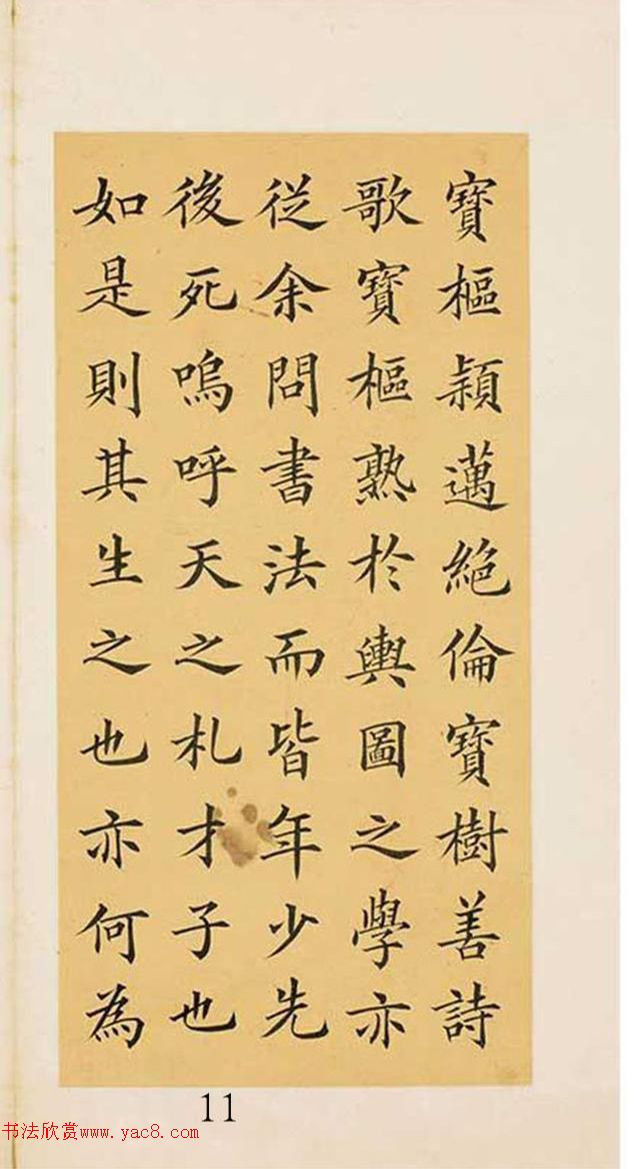 寶樞穎邁絕倫寶樹善詩
歌寶樞熟於輿圖之學亦
從余問書法而皆年少先
後死嗚呼天之札才子也
如是則其生之也亦何為
11
书法欣赏www.yac8.com